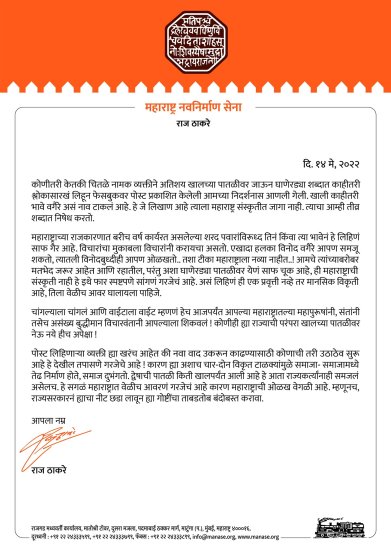 महाराष्ट्र नवनिर्माण सेना
राज ठाकरे
दि. १४ मे, २०२२
कोणीतरी केतकी चितळे नामक व्यक्तीने अतिशय खालच्या पातळीवर जाऊन घाणेरड्या शब्दात काहीतरी
श्लोकासारखं लिहून फेसबुकवर पोस्ट प्रकाशित केलेली आमच्या निदर्शनास आणली गेली. खाली काहीतरी
भावे वगैरे असं नाव टाकलं आहे. हे जे लिखाण आहे त्याला महाराष्ट्र संस्कृतीत जागा नाही. त्याचा आम्ही तीव्र
शब्दात निषेध करतो.
महाराष्ट्राच्या राजकारणात बरीच वर्षं कार्यरत असलेल्या शरद पवारांविरूध्द तिनं किंवा त्या भावेनं हे लिहिणं
साफ गैर आहे. विचारांचा मुकाबला विचारांनी करायचा असतो. एखादा हलका विनोद वगैरे आपण समजू
शकतो, त्यातली विनोदबुध्दीही आपण ओळखतो.. तशा टीका महाराष्ट्राला नव्या नाहीत..! आमचे त्यांच्याबरोबर
मतभेद जरूर आहेत आणि राहतील, परंतु अशा घाणेरड्या पातळीवर येणं साफ चूक आहे, ही महाराष्ट्राची
संस्कृती नाही हे इथे फार स्पष्टपणे सांगणं गरजेचं आहे. असं लिहिणं ही एक प्रवृत्ती नव्हे तर मानसिक विकृती
आहे, तिला वेळीच आवर घालायला पाहिजे.
चांगल्याला चांगलं आणि वाईटाला वाईट म्हणणं हेच आजपर्यंत आपल्या महाराष्ट्रातल्या महापुरूषांनी, संतांनी
तसेच असंख्य बुद्धीमान विचारवंतांनी आपल्याला शिकवलं ! कोणीही ह्या राज्याची परंपरा खालच्या पातळीवर
नेऊ नये हीच अपेक्षा !
पोस्ट लिहिणाऱ्या व्यक्ती ह्या खरंच आहेत की नवा वाद उकरून काढण्यासाठी कोणाची तरी उठाठेव सुरू
आहे हे देखील तपासणे गरजेचे आहे ! कारण ह्या अशाच चार-दोन विकृत टाळक्यांमुळे समाजा- समाजामध्ये
तेढ निर्माण होते, समाज दुभंगतो. द्वेषाची पातळी किती खालपर्यंत आली आहे हे आता राज्यकर्त्यांनाही समजलं
असेलच. हे सगळं महाराष्ट्रात वेळीच आवरणं गरजेचं आहे कारण महाराष्ट्राची ओळख वेगळी आहे. म्हणूनच,
राज्यसरकारनं ह्याचा नीट छडा लावून ह्या गोष्टींचा ताबडतोब बंदोबस्त करावा.
आपला नम्र
राज ठाकरे
राजगड मध्यवर्ती कार्यालय, मातोश्री टॉवर, दुसरा मजला, पद्माबाई ठक्कर मार्ग, माटुंगा (प.), मुंबई, महाराष्ट्र ४०००१६.
info@manase.org, www.manase.org